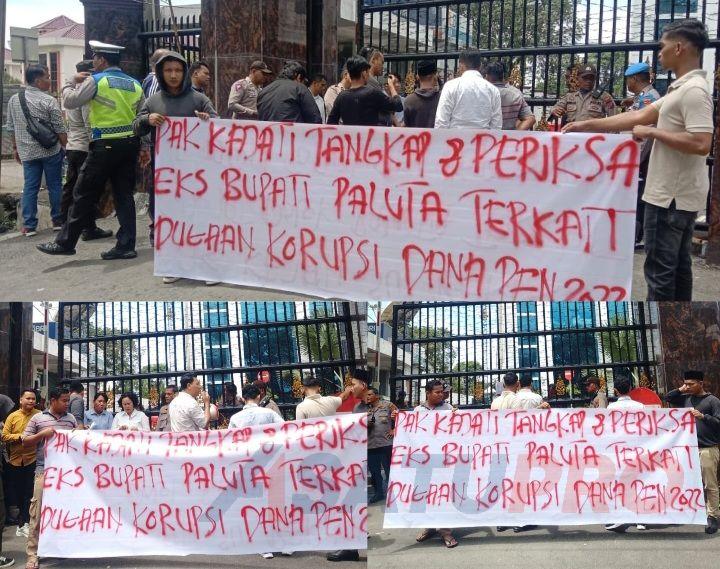 PAK KAJATI TANGKAP & PERIKSA
EKS BUPATI PALUTA TERKAIT
DUGAAN KORUPSI DANA PEN 2022
PAK KAJATI TANGKAP & PERIKSA
EKS BUPATI PALUTA TERKAIT
DUGAAN KORUPSI DANA PEN 2
PAK KAJATI TANGKAP & PERIKSA
EKS BUPATI PALUTA TERKATI
DUGAAN KORUPSI DANA PEN 2022